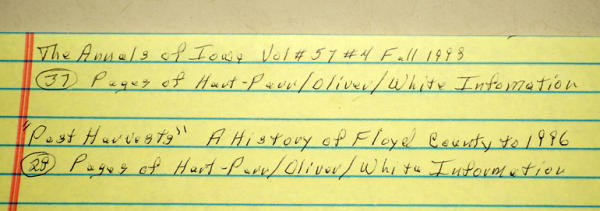 The Annals of Iowa Vol # 57 #4 Fall 1998
37 Pages of Hart-Parr/Oliver/White Information
"Past Harvests" A History of Floyd County to 1996
29 Pages of Hart-Parr/Oliver/White Information